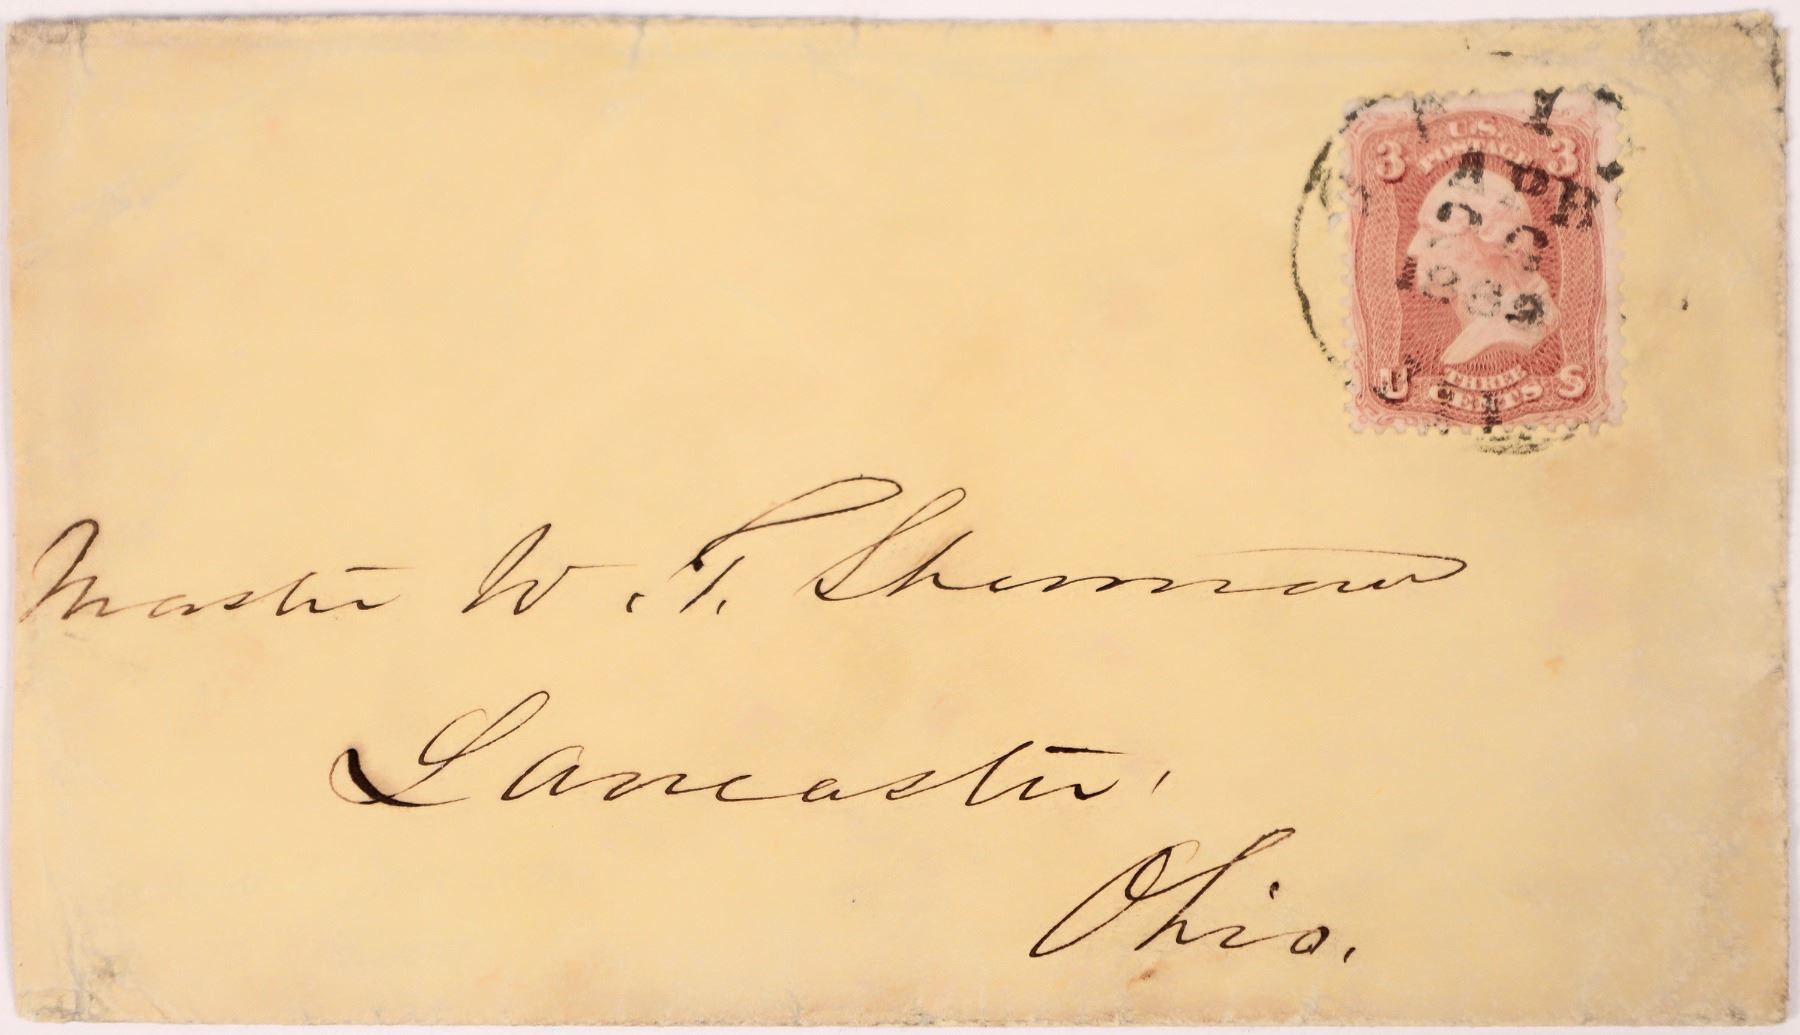 U.S.
POSTAGE
3 3
APR
1862
THREE
CENTS
U S
Master W. T. Sherman
Lancaster,
Ohio.